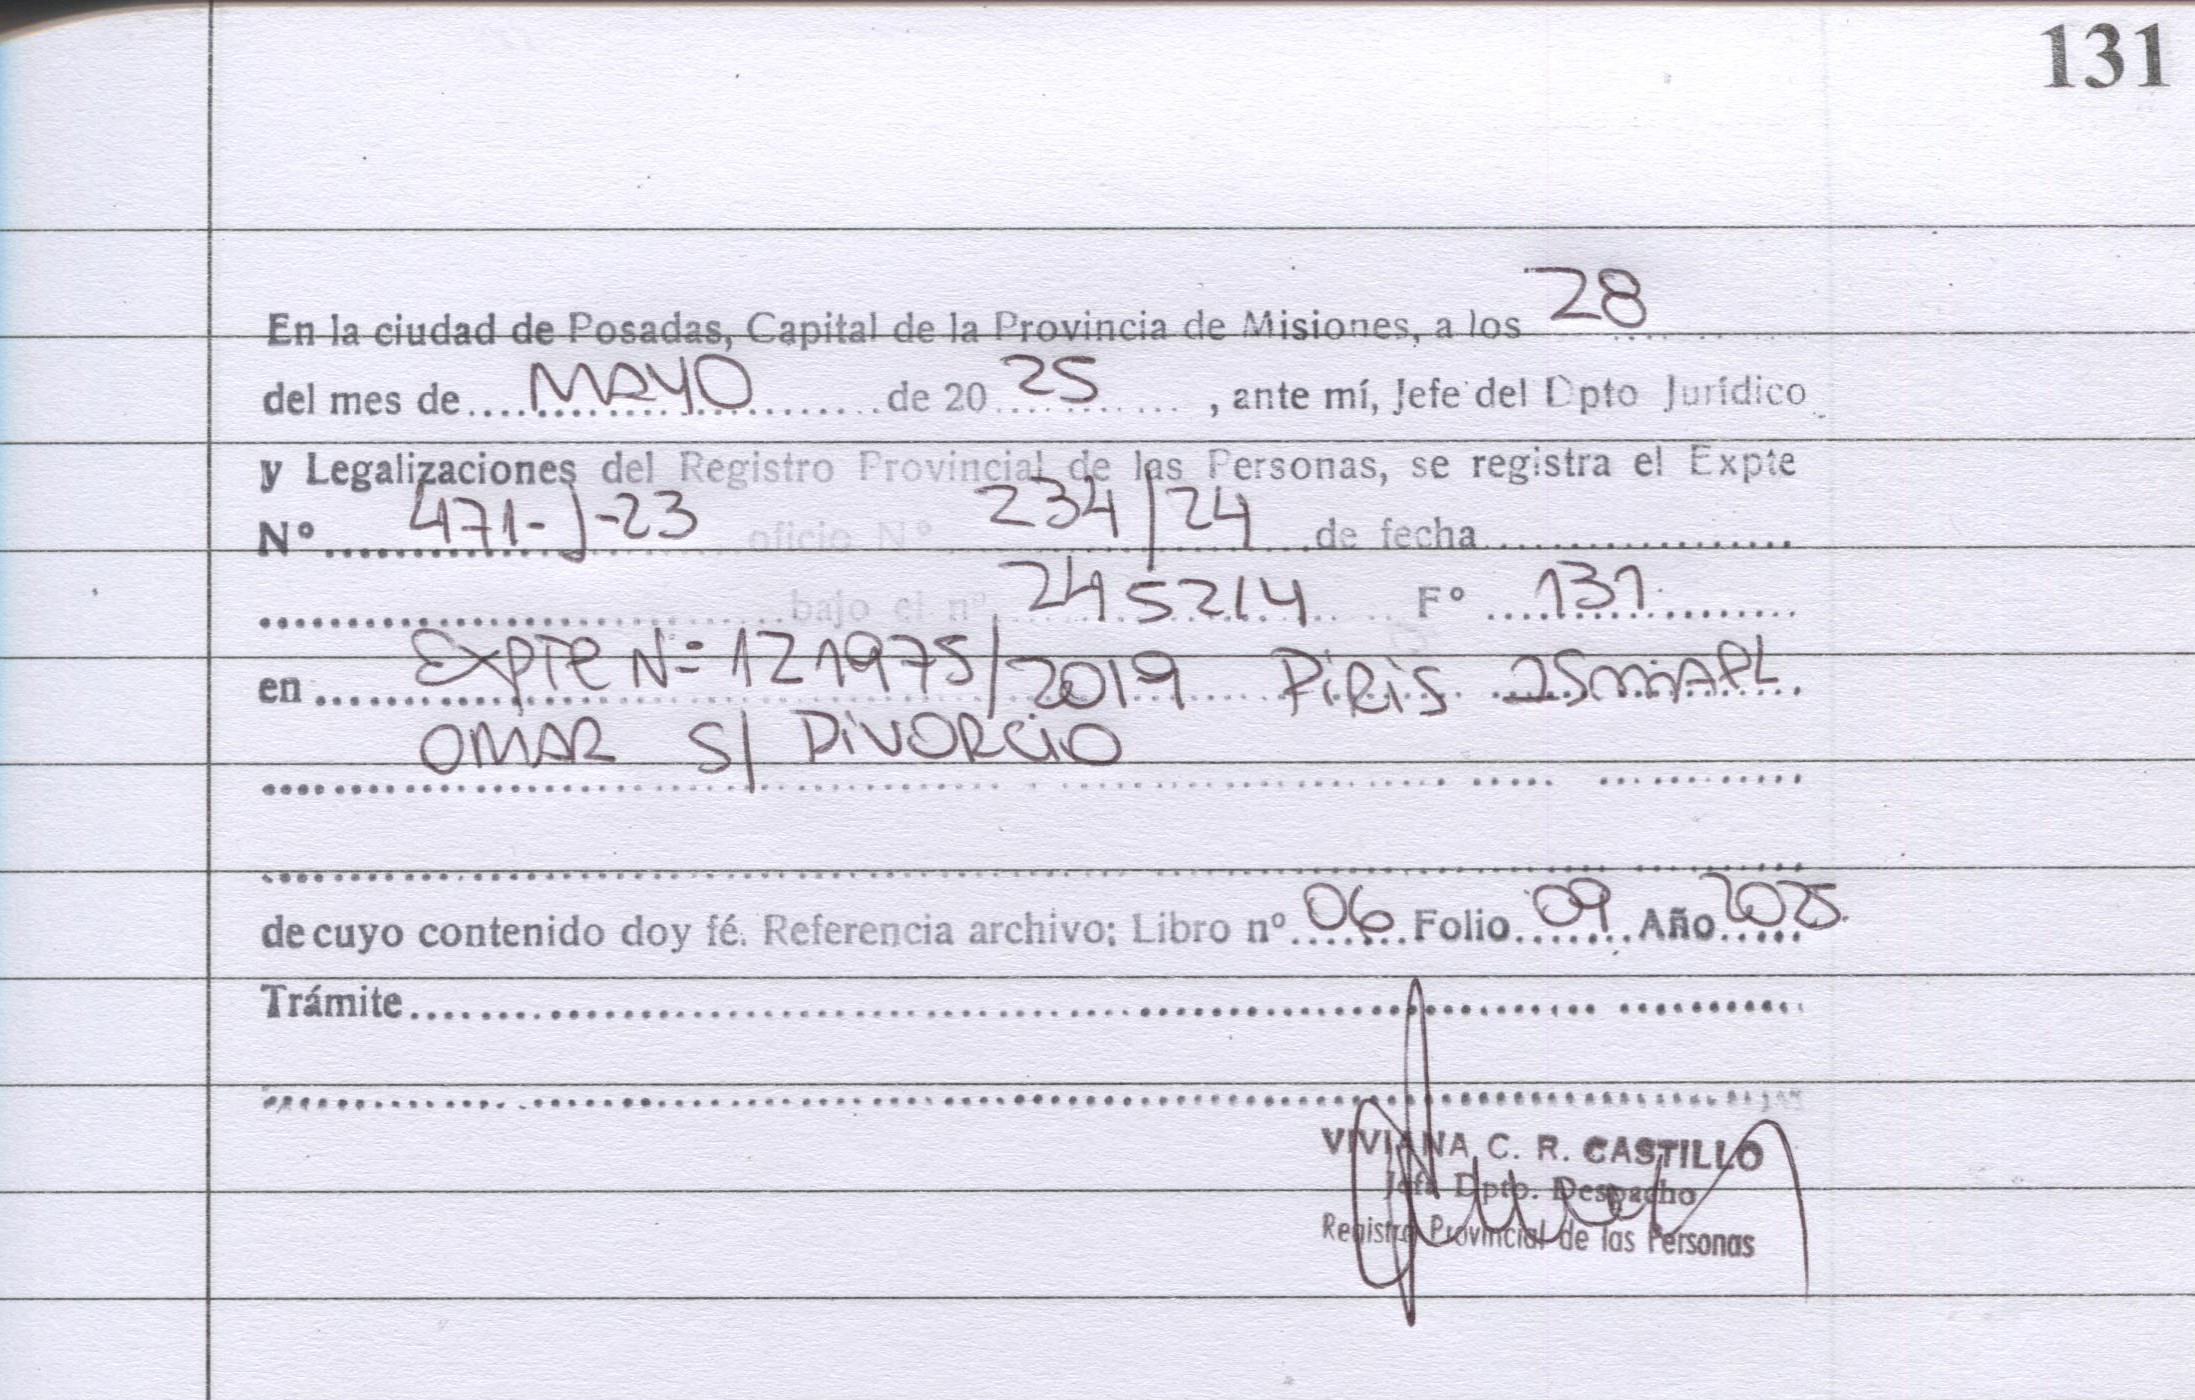 131
En la ciudad de Posadas, Capital de la Provincia de Misiones, a los 28
del mes de MAYO de 2025, ante mí, Jefe del Dpto Jurídico
y Legalizaciones del Registro Provincial de las Personas, se registra el Expte
Nº 471-J-23 oficio Nº 234/24 de fecha
bajo el nº 245214 Fº 131
en Expte Nº 121975/2019 PIRIS ISMAEL
OMAR S/ DIVORCIO
de cuyo contenido doy fé. Referencia archivo: Libro nº 06 Folio 09 Año 2025.
Trámite
VIVIANA C. R. CASTILLO
Jefe Dpto. Despacho
Registro Provincial de las Personas